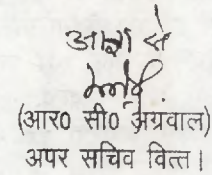 आज्ञा से
(आर0 सी0 अग्रवाल)
अपर सचिव वित्त।